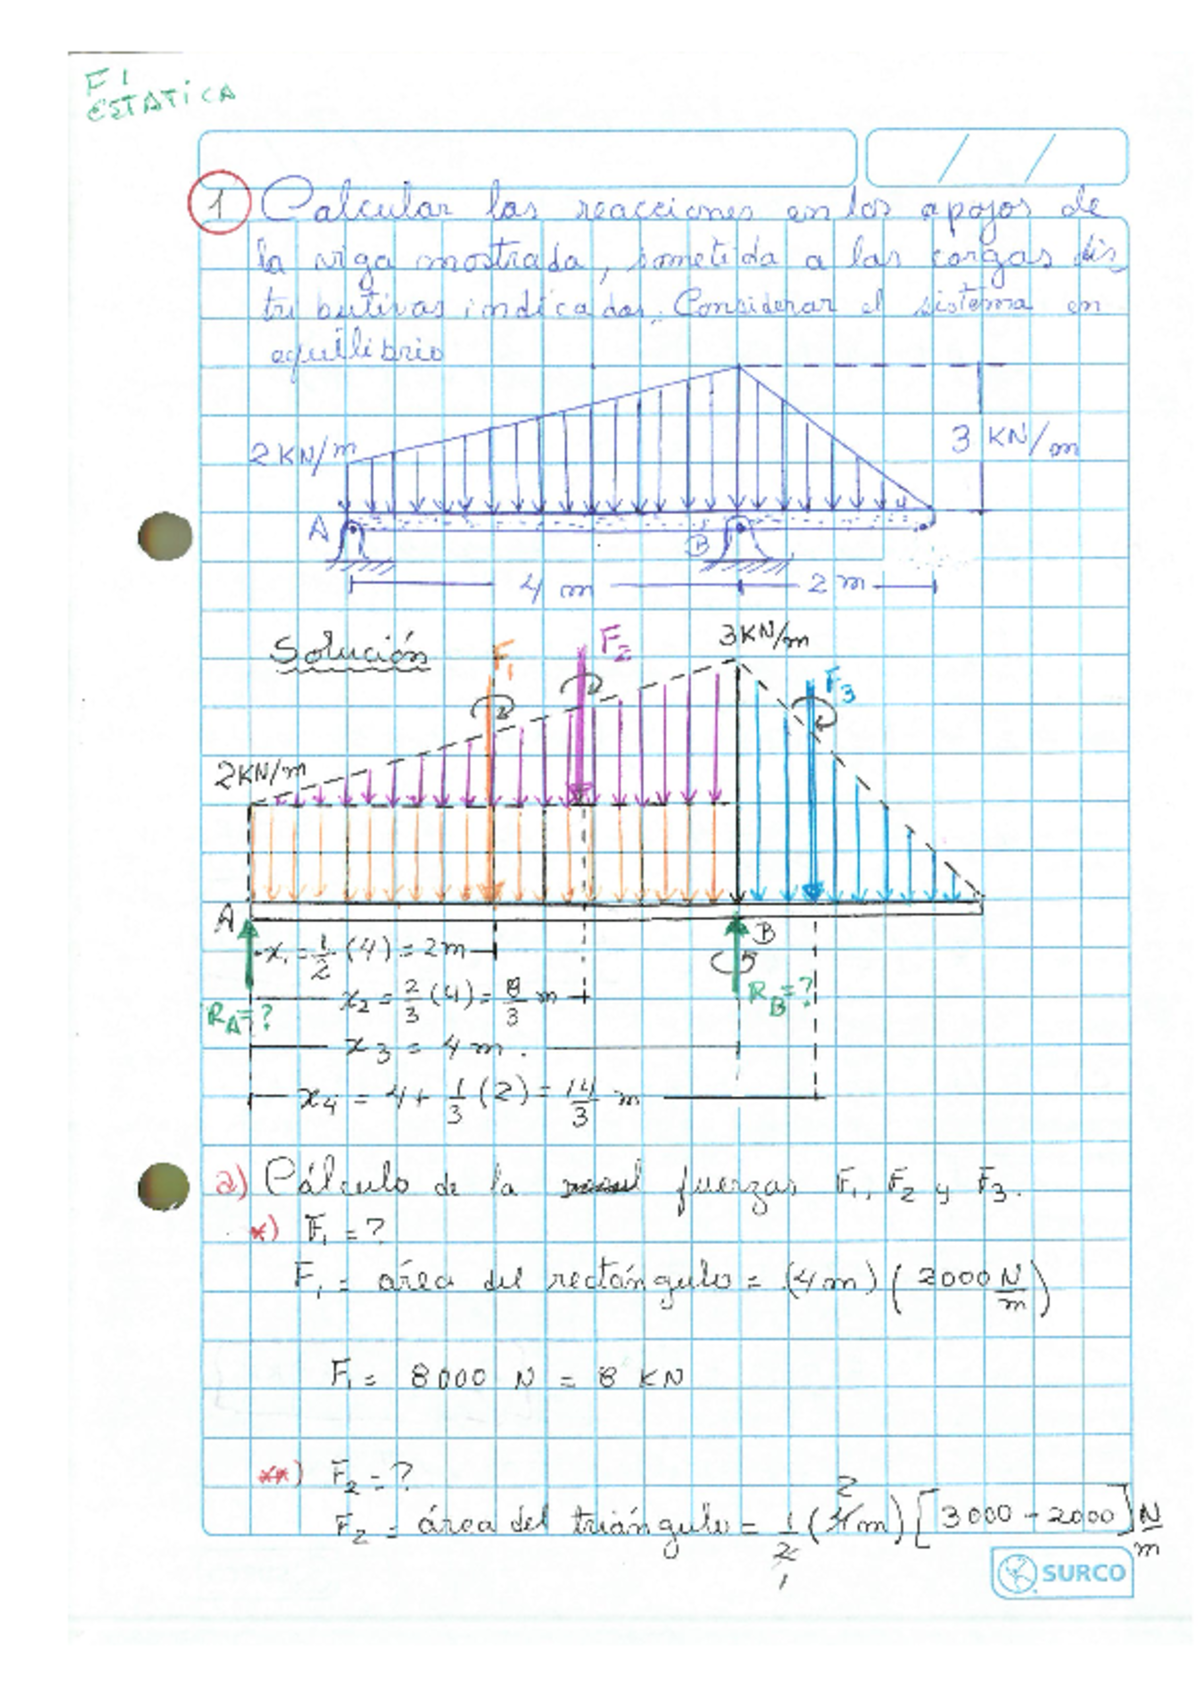 F1
ESTATICA
1 Calcular las reacciones en los apoyos de
la viga mostrada, sometida a las cargas dis
tributivas indicadas. Considerar el sistema en
equilibrio
2 KN/m
3 KN/m
A
B
4 m
2 m
Solución
F1
F2
3KN/m
F3
2KN/m
A
B
x1 = 1/2 (4) = 2m
x2 = 2/3 (4) = 8/3 m
RA=?
RB=?
x3 = 4 m.
x4 = 4+ 1/3 (2) = 14/3 m
a) Cálculo de la fuerzas F1, F2 y F3.
*) F1 = ?
F1 = área del rectángulo = (4m) (2000 N/m)
F1 = 8000 N = 8 KN
**) F2 = ?
2
F2 = área del triángulo = 1/2 (4m) [3000 - 2000] N/m
1
SURCO